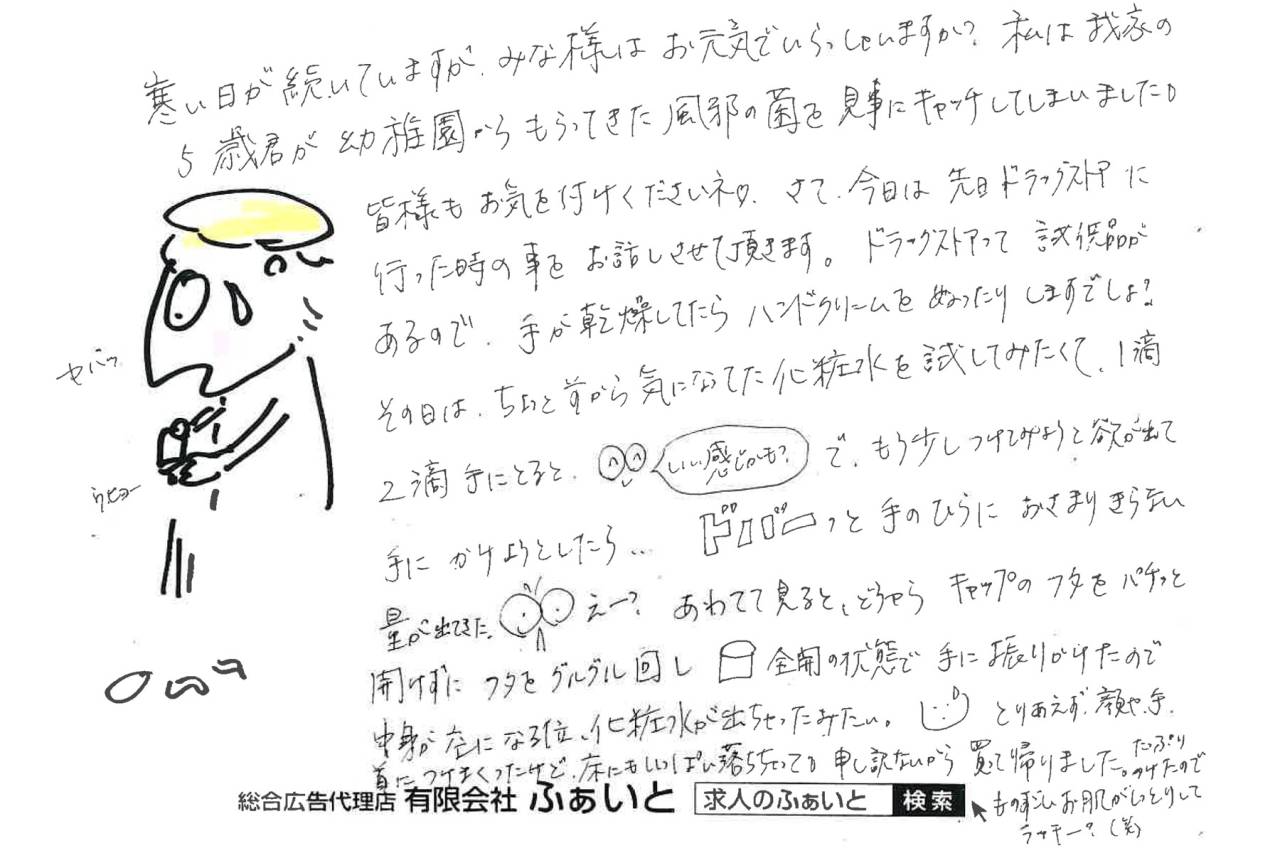 寒い日が続いていますが、みな様はお元気でいらっしゃいますか？私は我家の
5歳君が幼稚園からもらってきた風邪の菌を見事にキャッチしてしまいました。
皆様もお気を付けくださいネ♡。さて、今日は先日ドラッグストアに
行った時の事をお話しさせて頂きます。ドラッグストアって試供品が
あるので、手が乾燥してたらハンドクリームをぬったりしますでしょ？
その日は、ちょっと前から気になってた化粧水を試してみたくて、1滴
2滴手にとると、いい感じかも？で、もう少しつけてみようと欲が出て
手にかけようとしたら… ドバーっと手のひらにおさまりきらない
量が出てきた。えー？あわてて見ると、どうやらキャップのフタをパチッと
開けずにフタをグルグル回し全開の状態で手に振りかけたので
中身が空になる位、化粧水が出ちゃったみたい。とりあえず、顔や、手、
首につけまくったけど、床にもいっぱい落ちちゃって。申し訳ないから買って帰りました。たっぷり
つけたので
ものすごいお肌がしっとりして
ラッキー？(笑)
ヤバッ
総合広告代理店 有限会社 ふぁいと 求人のふぁいと 検索